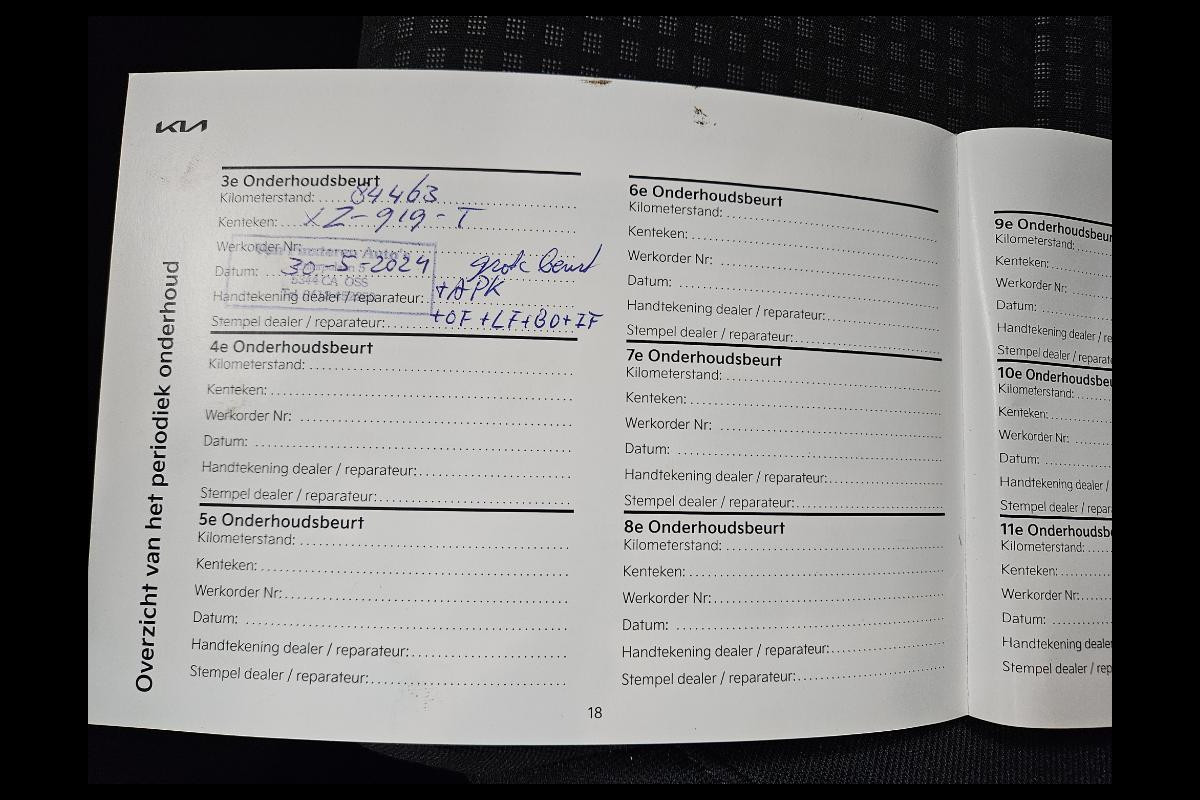 KIA
Overzicht van het periodiek onderhoud
3e Onderhoudsbeurt
Kilometerstand: 84.463
Kenteken: XZ-919-T
Werkorder Nr:
Datum: 30-5-2024 grote beurt
5344 CA OSS
Handtekening dealer / reparateur: +APK
Stempel dealer / reparateur: +OF +LF+BO+IF
4e Onderhoudsbeurt
Kilometerstand:
Kenteken:
Werkorder Nr:
Datum:
Handtekening dealer / reparateur:
Stempel dealer / reparateur:
5e Onderhoudsbeurt
Kilometerstand:
Kenteken:
Werkorder Nr:
Datum:
Handtekening dealer / reparateur:
Stempel dealer / reparateur:
6e Onderhoudsbeurt
Kilometerstand:
Kenteken:
Werkorder Nr:
Datum:
Handtekening dealer / reparateur:
Stempel dealer / reparateur:
7e Onderhoudsbeurt
Kilometerstand:
Kenteken:
Werkorder Nr:
Datum:
Handtekening dealer / reparateur:
Stempel dealer / reparateur:
8e Onderhoudsbeurt
Kilometerstand:
Kenteken:
Werkorder Nr:
Datum:
Handtekening dealer / reparateur:
Stempel dealer / reparateur:
9e Onderhoudsbeur
Kilometerstand:
Kenteken:
Werkorder Nr:
Datum:
Handtekening dealer / re
Stempel dealer / reparat
10e Onderhoudsbeu
Kilometerstand:
Kenteken:
Werkorder Nr:
Datum:
Handtekening dealer /
Stempel dealer / repar
11e Onderhoudsb
Kilometerstand:
Kenteken:
Werkorder Nr:
Datum:
Handtekening dealer
Stempel dealer / rep
18